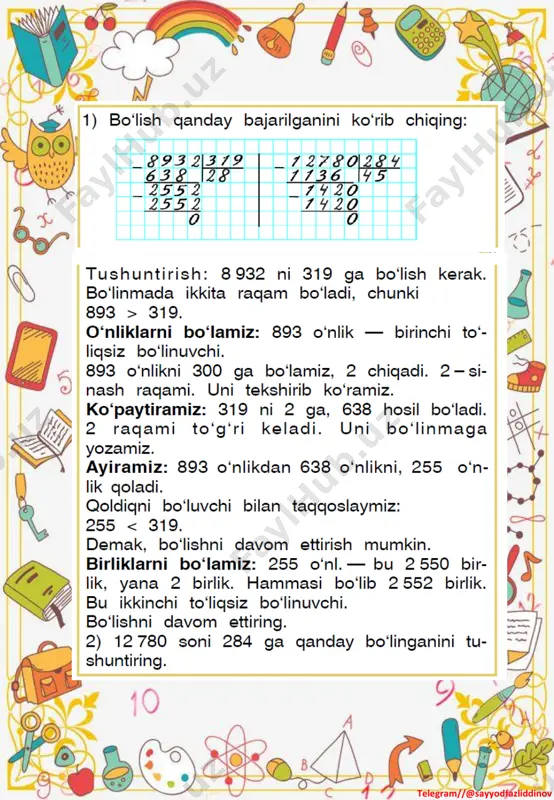 1) Bo‘lish qanday bajarilganini ko‘rib chiqing:
-8932 319
638 28
-2552
2552
0
-12780 284
1136 45
-1420
1420
0
Tushuntirish: 8 932 ni 319 ga bo‘lish kerak.
Bo‘linmada ikkita raqam bo‘ladi, chunki
893 > 319.
O‘nliklarni bo‘lamiz: 893 o‘nlik — birinchi to‘-
liqsiz bo‘linuvchi.
893 o‘nlikni 300 ga bo‘lamiz, 2 chiqadi. 2 – si-
nash raqami. Uni tekshirib ko‘ramiz.
Ko‘paytiramiz: 319 ni 2 ga, 638 hosil bo‘ladi.
2 raqami to‘g‘ri keladi. Uni bo‘linmaga
yozamiz.
Ayiramiz: 893 o‘nlikdan 638 o‘nlikni, 255 o‘n-
lik qoladi.
Qoldiqni bo‘luvchi bilan taqqoslaymiz:
255 < 319.
Demak, bo‘lishni davom ettirish mumkin.
Birliklarni bo‘lamiz: 255 o‘nl. — bu 2 550 bir-
lik, yana 2 birlik. Hammasi bo‘lib 2 552 birlik.
Bu ikkinchi to‘liqsiz bo‘linuvchi.
Bo‘lishni davom ettiring.
2) 12 780 soni 284 ga qanday bo‘linganini tu-
shuntiring.
FaylHub.uz
FaylHub.uz
FaylHub.uz
10
A
B
C
Telegram//@sayyodfazliddinov